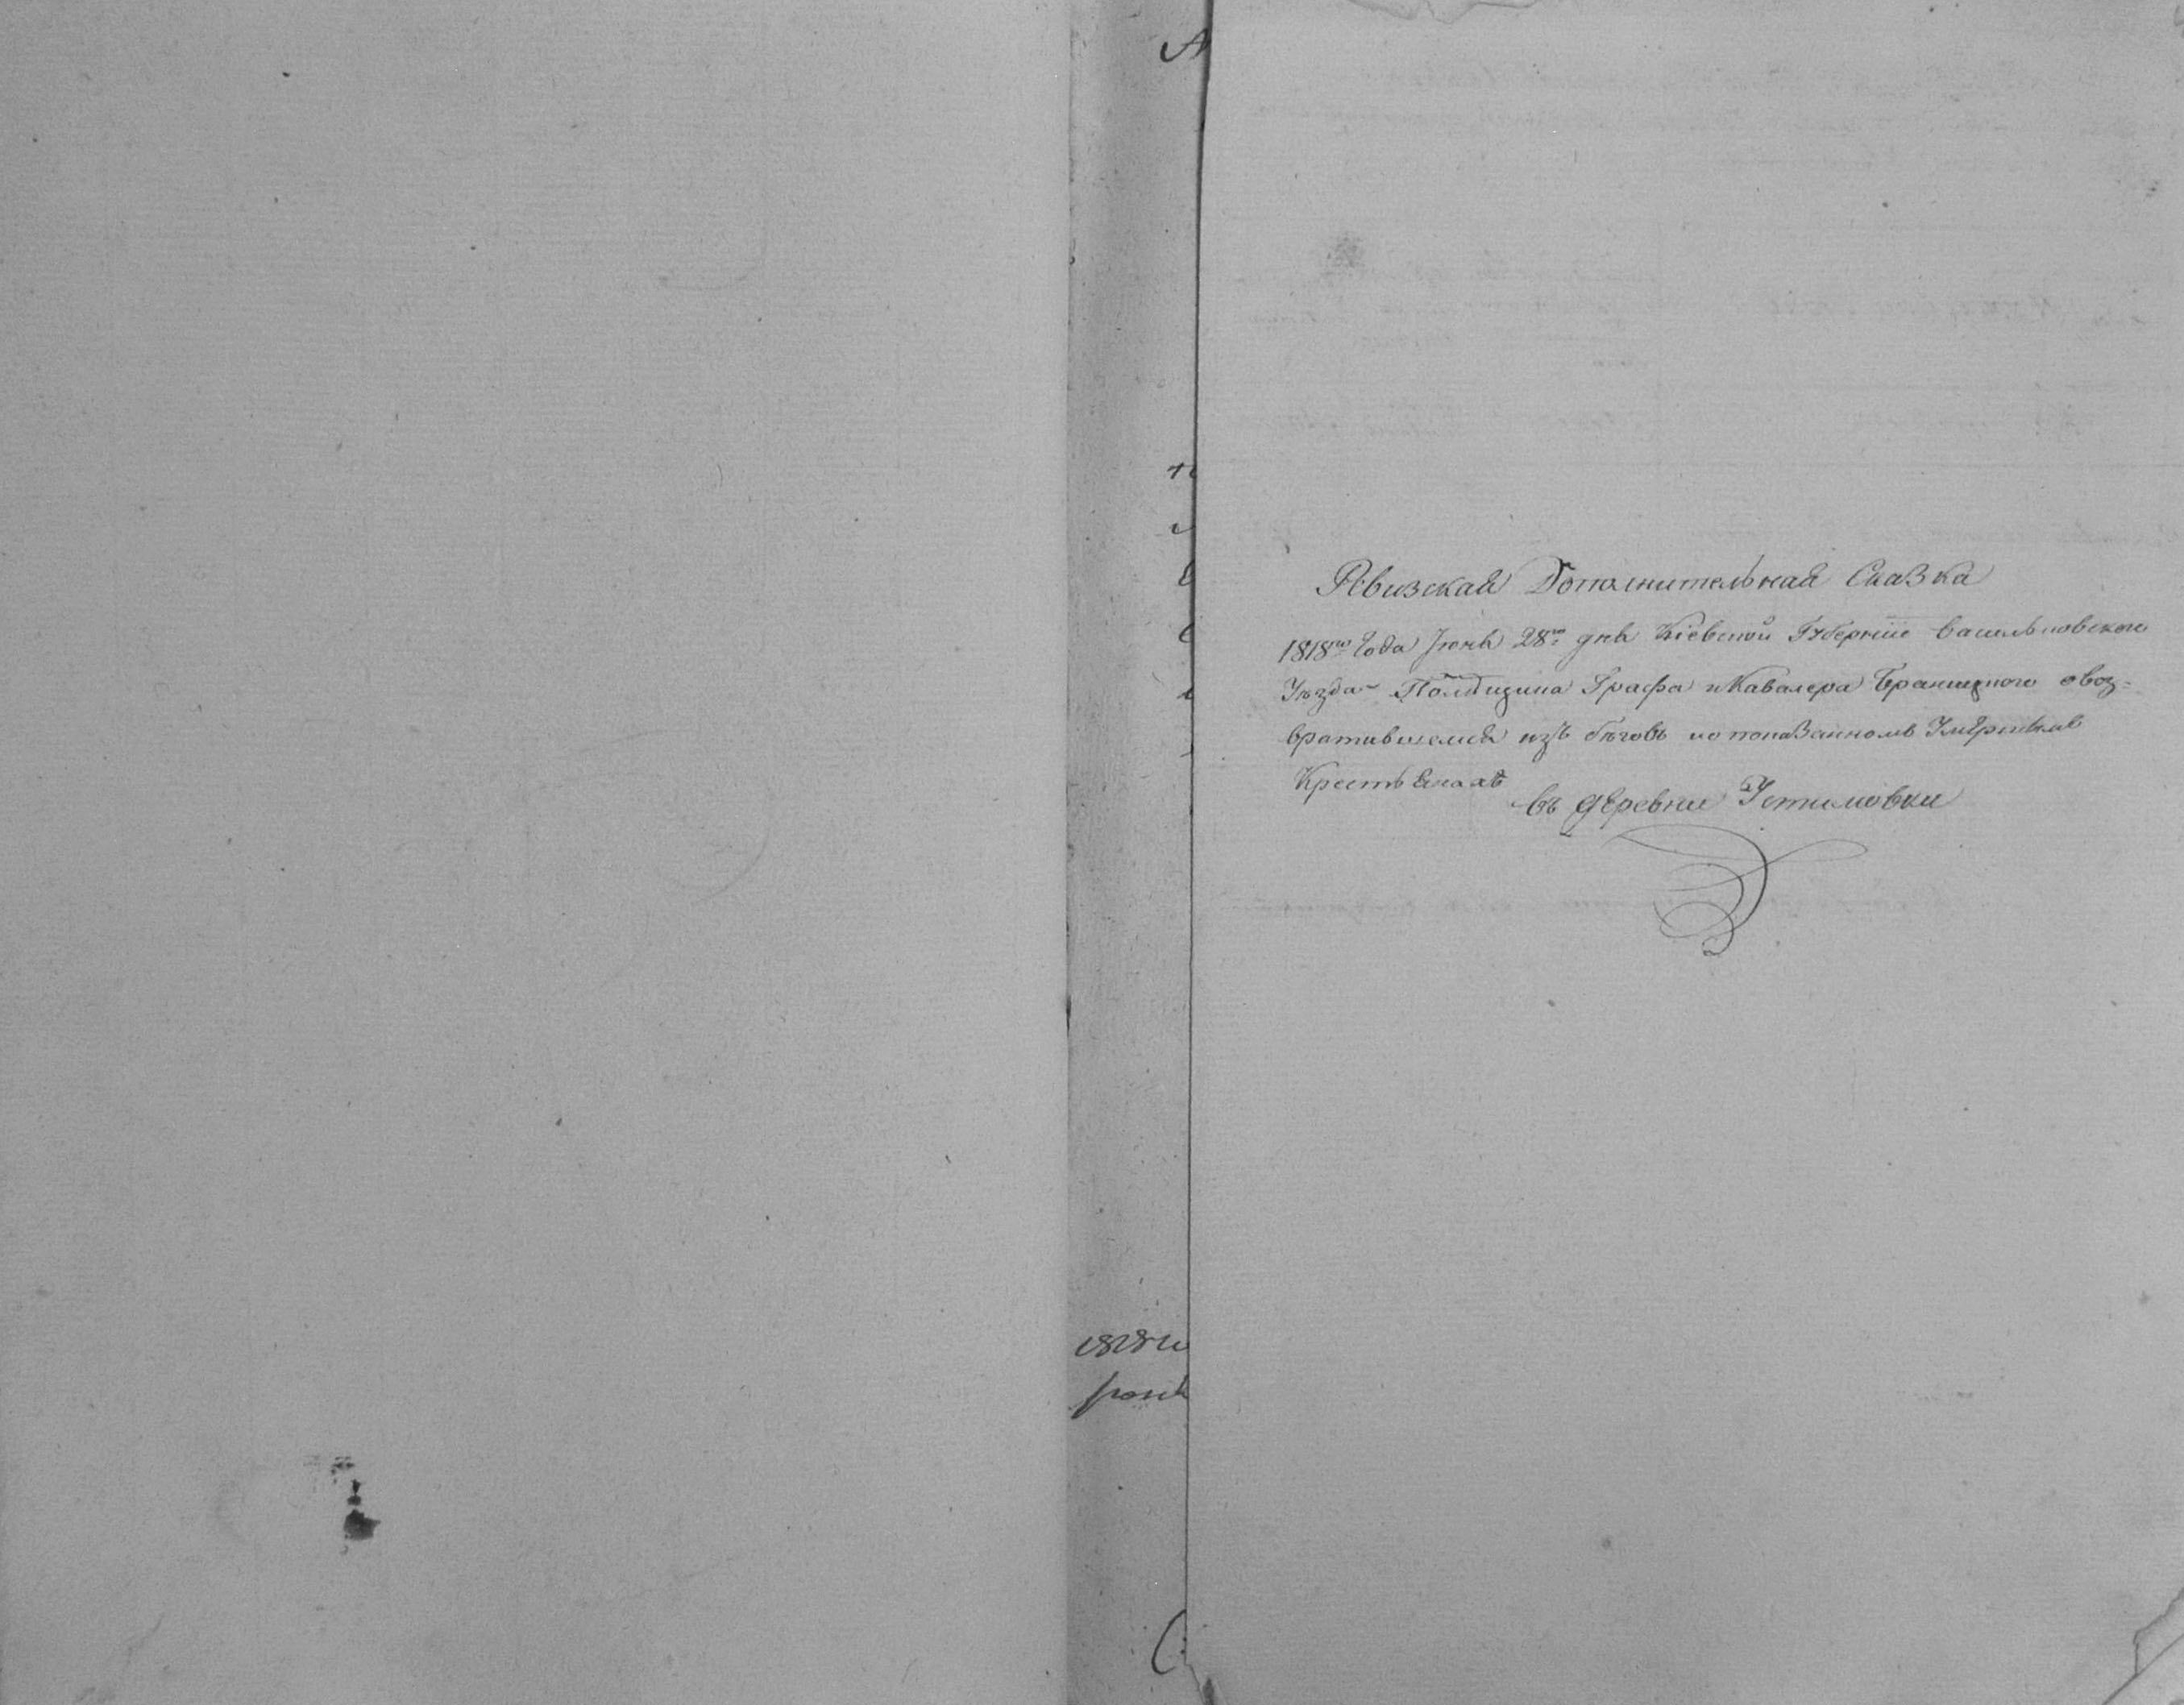 Ревизская Дополнительная Сказка
1818го Года Іюня 28го дня Кіевской Губерніи Васильковского
Уѣзда Помѣщика Графа и Кавалера Браницкого о воз-
вратившемся изъ бѣговъ и о показанномъ Умѣршимъ
Крестьянахъ
въ деревни Устимовки